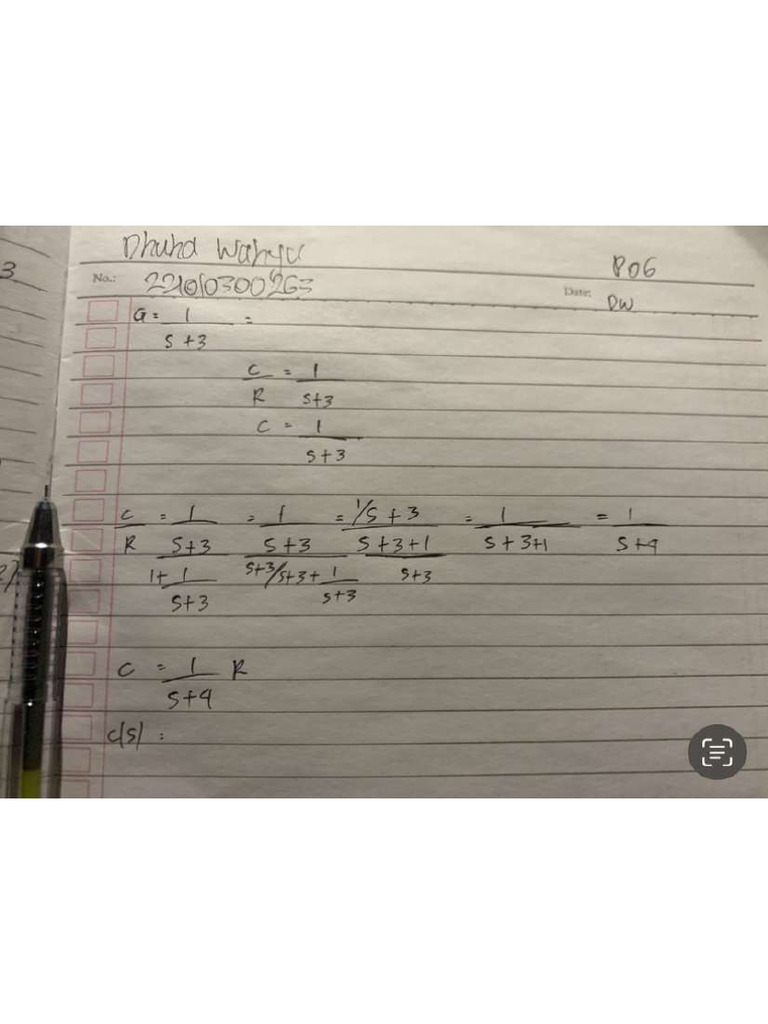 Dhuha Wahyu
P06
3
No.: 221010300263
Date: DW
G = 1/(s+3) =
C/R = 1/(s+3)
C = 1/(s+3)
C/R = (1/(s+3))/(1 + 1/(s+3)) = (1/(s+3))/(s+3/s+3 + 1/(s+3)) = (1/s+3)/((s+3+1)/(s+3)) = 1/(s+3+1) = 1/(s+4)
C = 1/(s+4) R
c(s) :